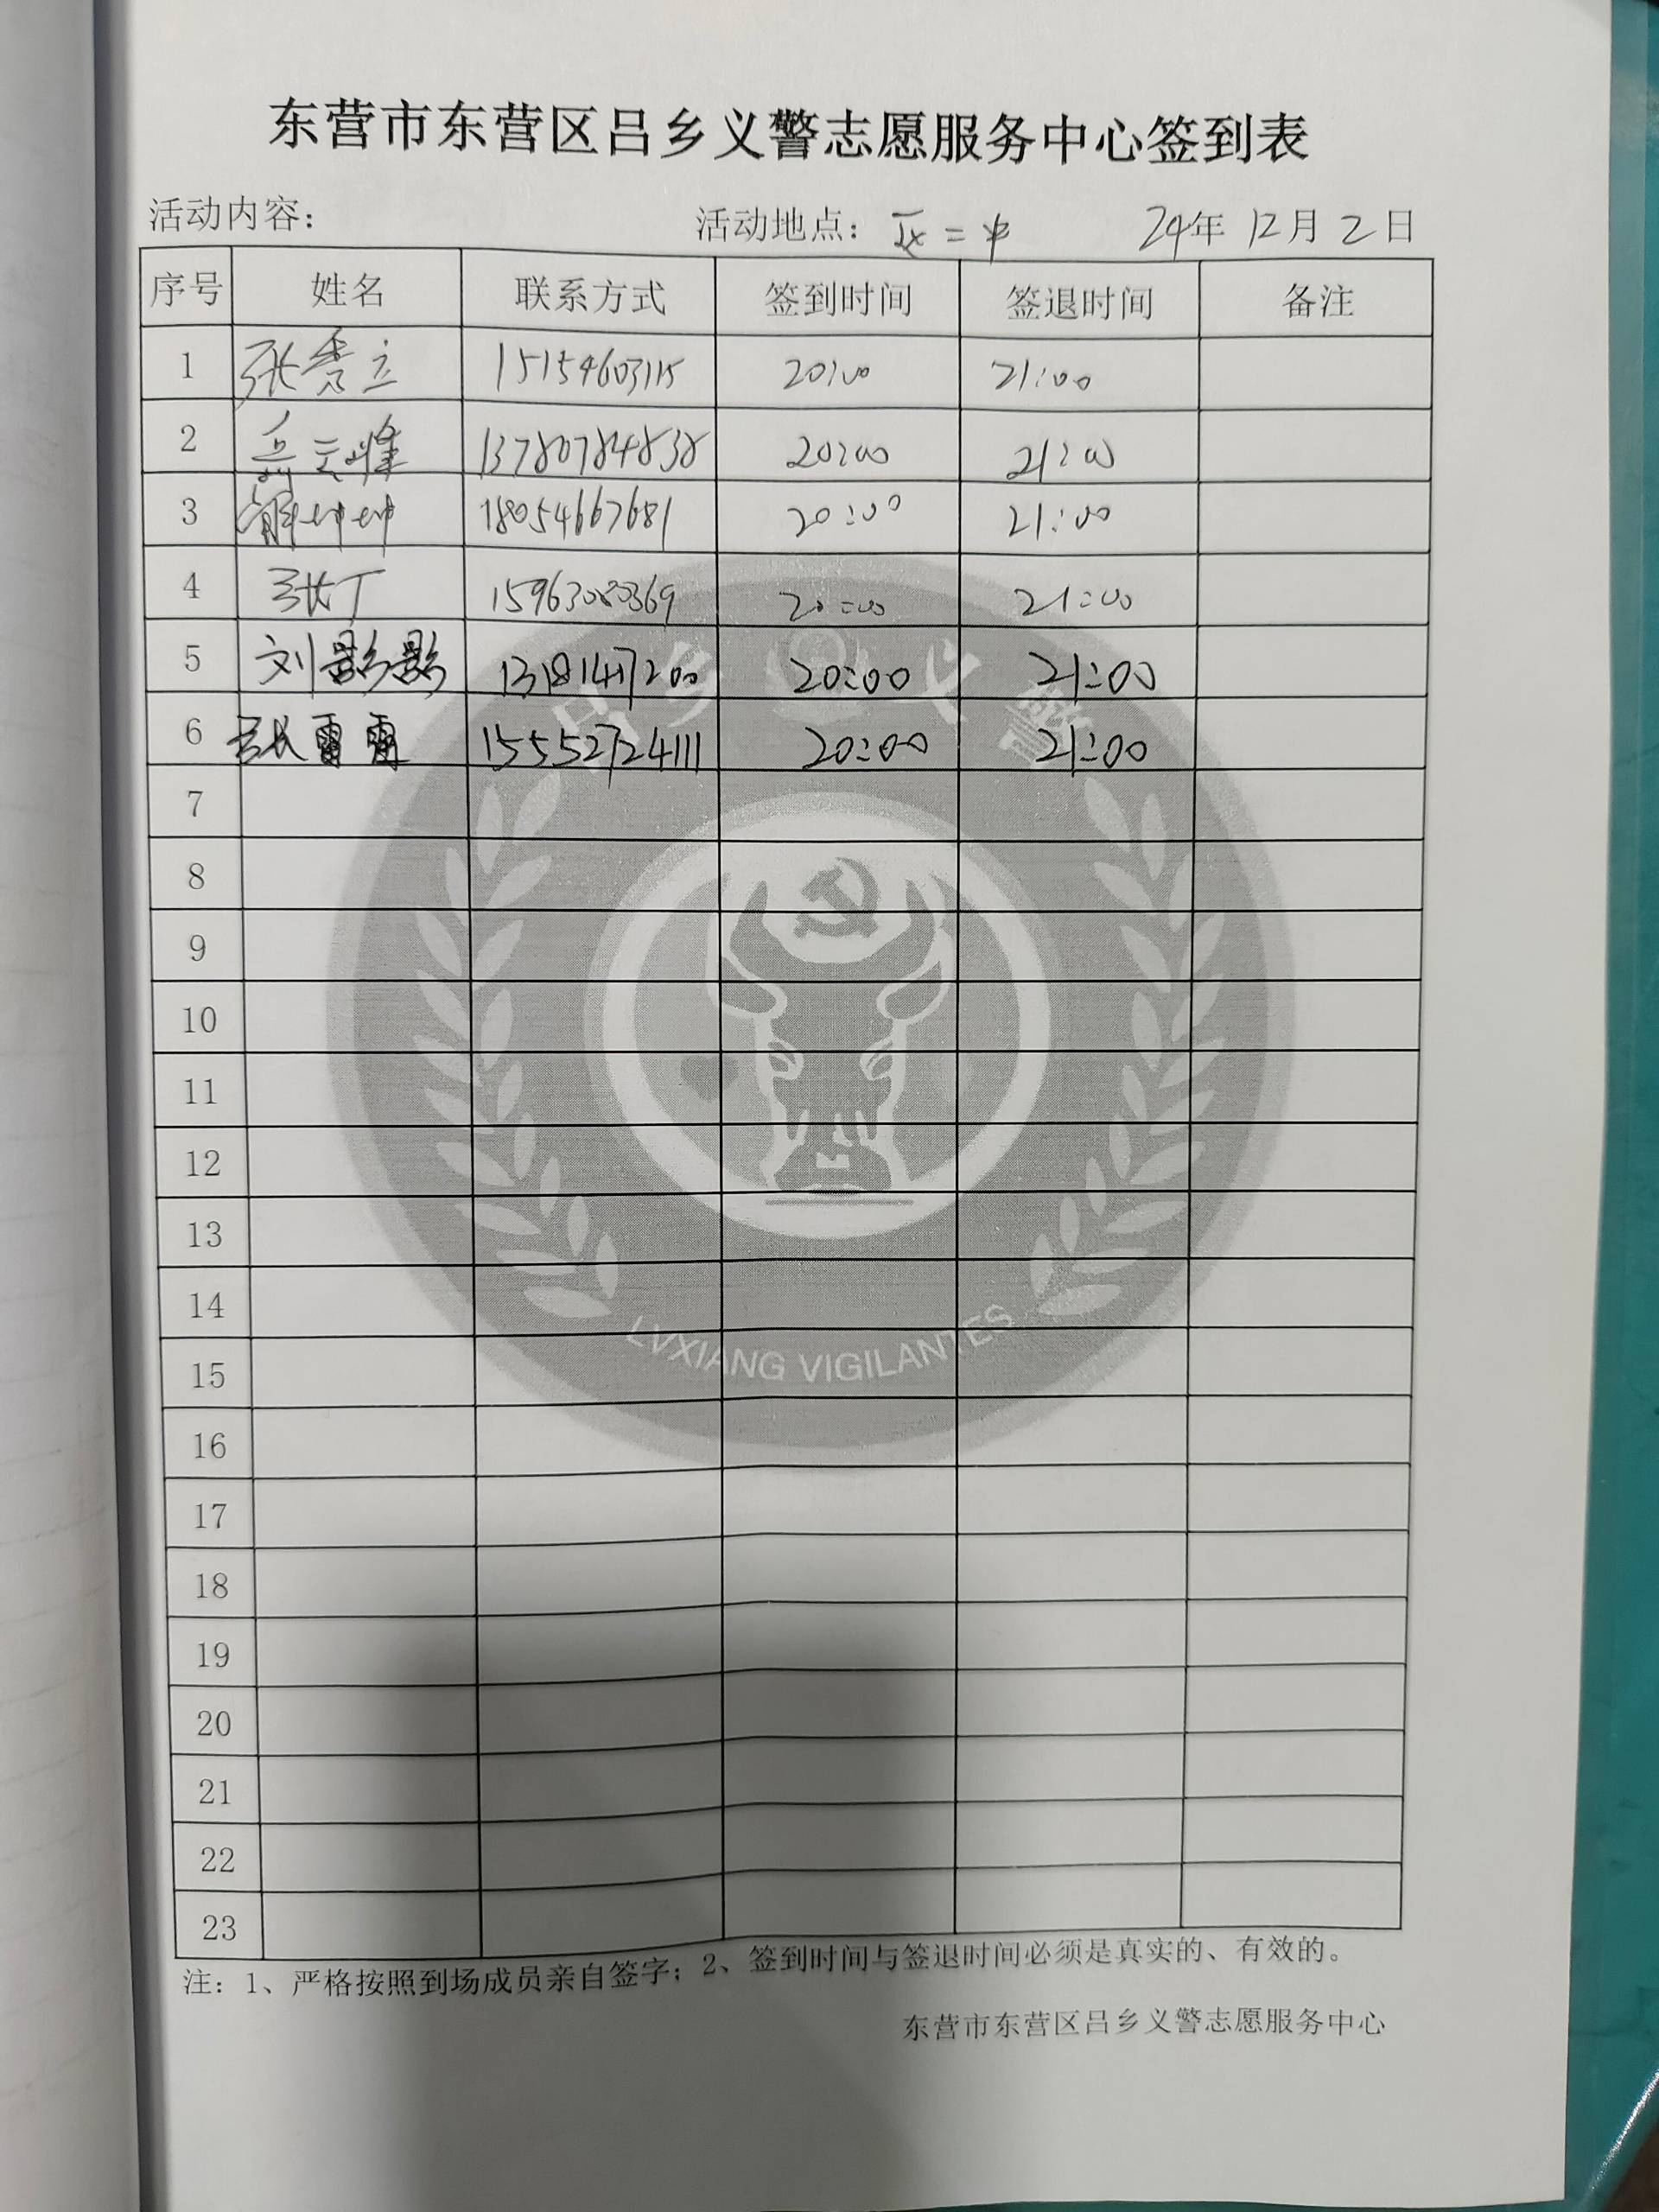 东营市东营区吕乡义警志愿服务中心签到表
活动内容: 活动地点: 二中 24年 12月 2日
序号 姓名 联系方式 签到时间 签退时间 备注
1 张秀立 15154603115 20:00 21:00
2 岳云峰 13780784838 20:00 21:00
3 解坤坤 18054667681 20:00 21:00
4 张丁 15963080369 20:00 21:00
5 刘影影 20:00 21:00
6 张雷雷 15552724111 20:00 21:00
7
8
9
10
11
12
13
14
15
16
17
18
19
20
21
22
23
吕乡义警
LVXIANG VIGILANTES
注: 1、严格按照到场成员亲自签字; 2、签到时间与签退时间必须是真实的、有效的。
东营市东营区吕乡义警志愿服务中心